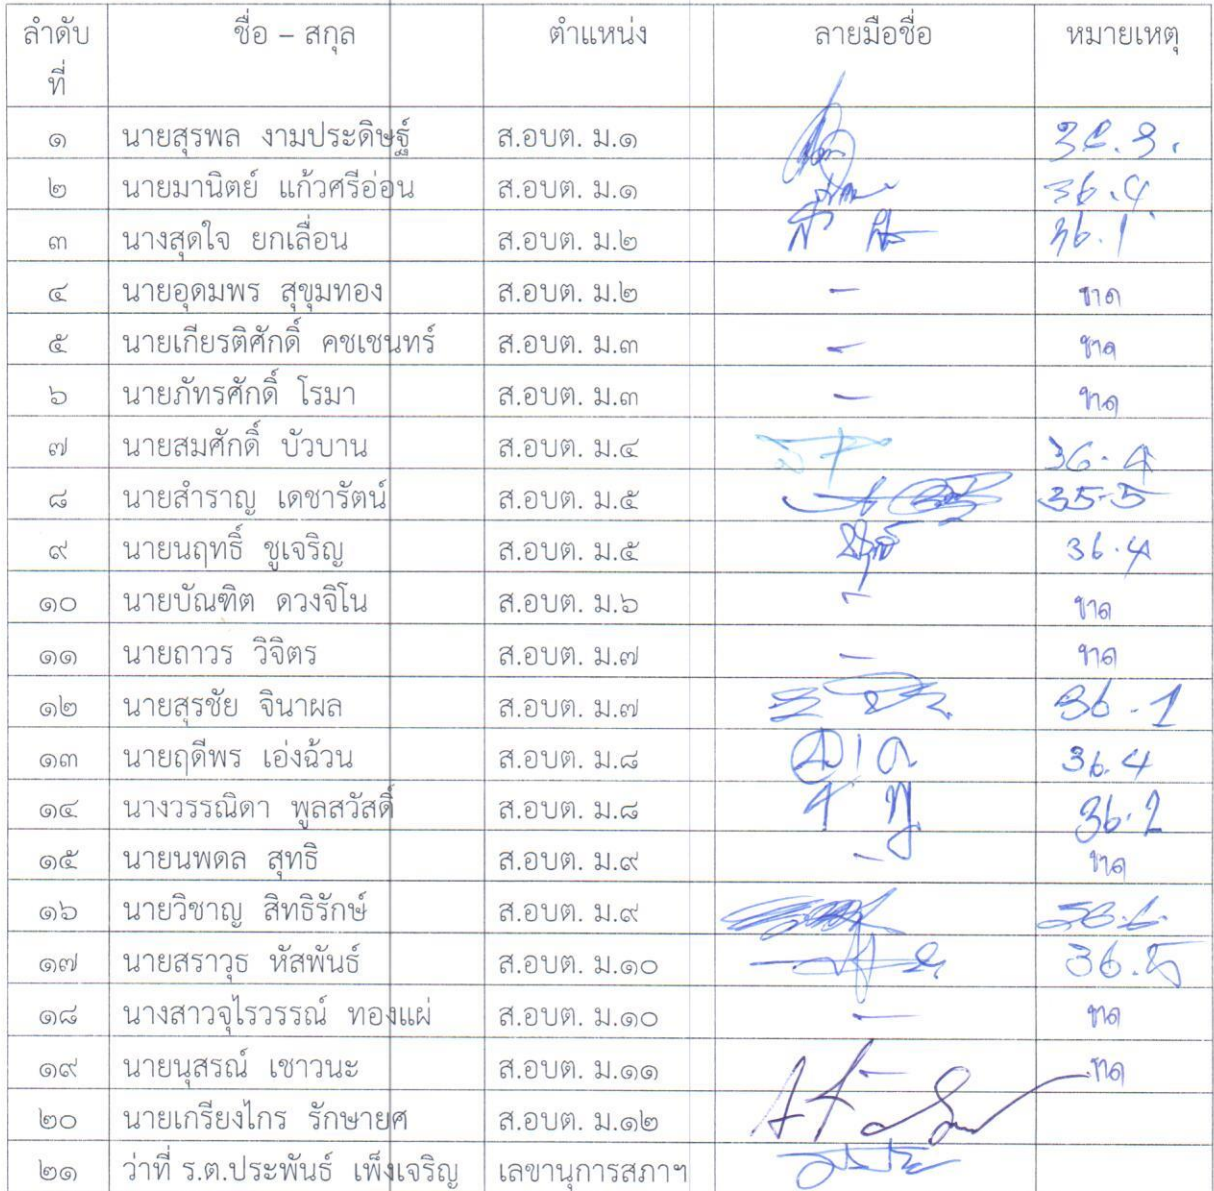 ลำดับ ชื่อ – สกุล ตำแหน่ง ลายมือชื่อ หมายเหตุ
ที่
๑ นายสุรพล งามประดิษฐ์ ส.อบต. ม.๑
๒ นายมานิตย์ แก้วศรีอ่อน ส.อบต. ม.๑ 36.4
๓ นางสุดใจ ยกเลื่อน ส.อบต. ม.๒ 36.1
๔ นายอุดมพร สุขุมทอง ส.อบต. ม.๒ – ขาด
๕ นายเกียรติศักดิ์ คชเชนทร์ ส.อบต. ม.๓ – ขาด
๖ นายภัทรศักดิ์ โรมา ส.อบต. ม.๓ – ขาด
๗ นายสมศักดิ์ บัวบาน ส.อบต. ม.๔ 36.4
๘ นายสำราญ เดชารัตน์ ส.อบต. ม.๕ 35-5
๙ นายนฤทธิ์ ชูเจริญ ส.อบต. ม.๕ 36.4
๑๐ นายบัณฑิต ดวงจิโน ส.อบต. ม.๖ – ขาด
๑๑ นายถาวร วิจิตร ส.อบต. ม.๗ – ขาด
๑๒ นายสุรชัย จินาผล ส.อบต. ม.๗ 36-1
๑๓ นายฤดีพร เอ่งฉ้วน ส.อบต. ม.๘ 36.4
๑๔ นางวรรณิดา พูลสวัสดิ์ ส.อบต. ม.๘ 36.2
๑๕ นายนพดล สุทธิ ส.อบต. ม.๙ – ขาด
๑๖ นายวิชาญ สิทธิรักษ์ ส.อบต. ม.๙
๑๗ นายสราวุธ หัสพันธ์ ส.อบต. ม.๑๐ 36.5
๑๘ นางสาวจุไรวรรณ์ ทองแผ่ ส.อบต. ม.๑๐ – ขาด
๑๙ นายนุสรณ์ เชาวนะ ส.อบต. ม.๑๑ – ขาด
๒๐ นายเกรียงไกร รักษายศ ส.อบต. ม.๑๒
๒๑ ว่าที่ ร.ต.ประพันธ์ เพ็งเจริญ เลขานุการสภาฯ